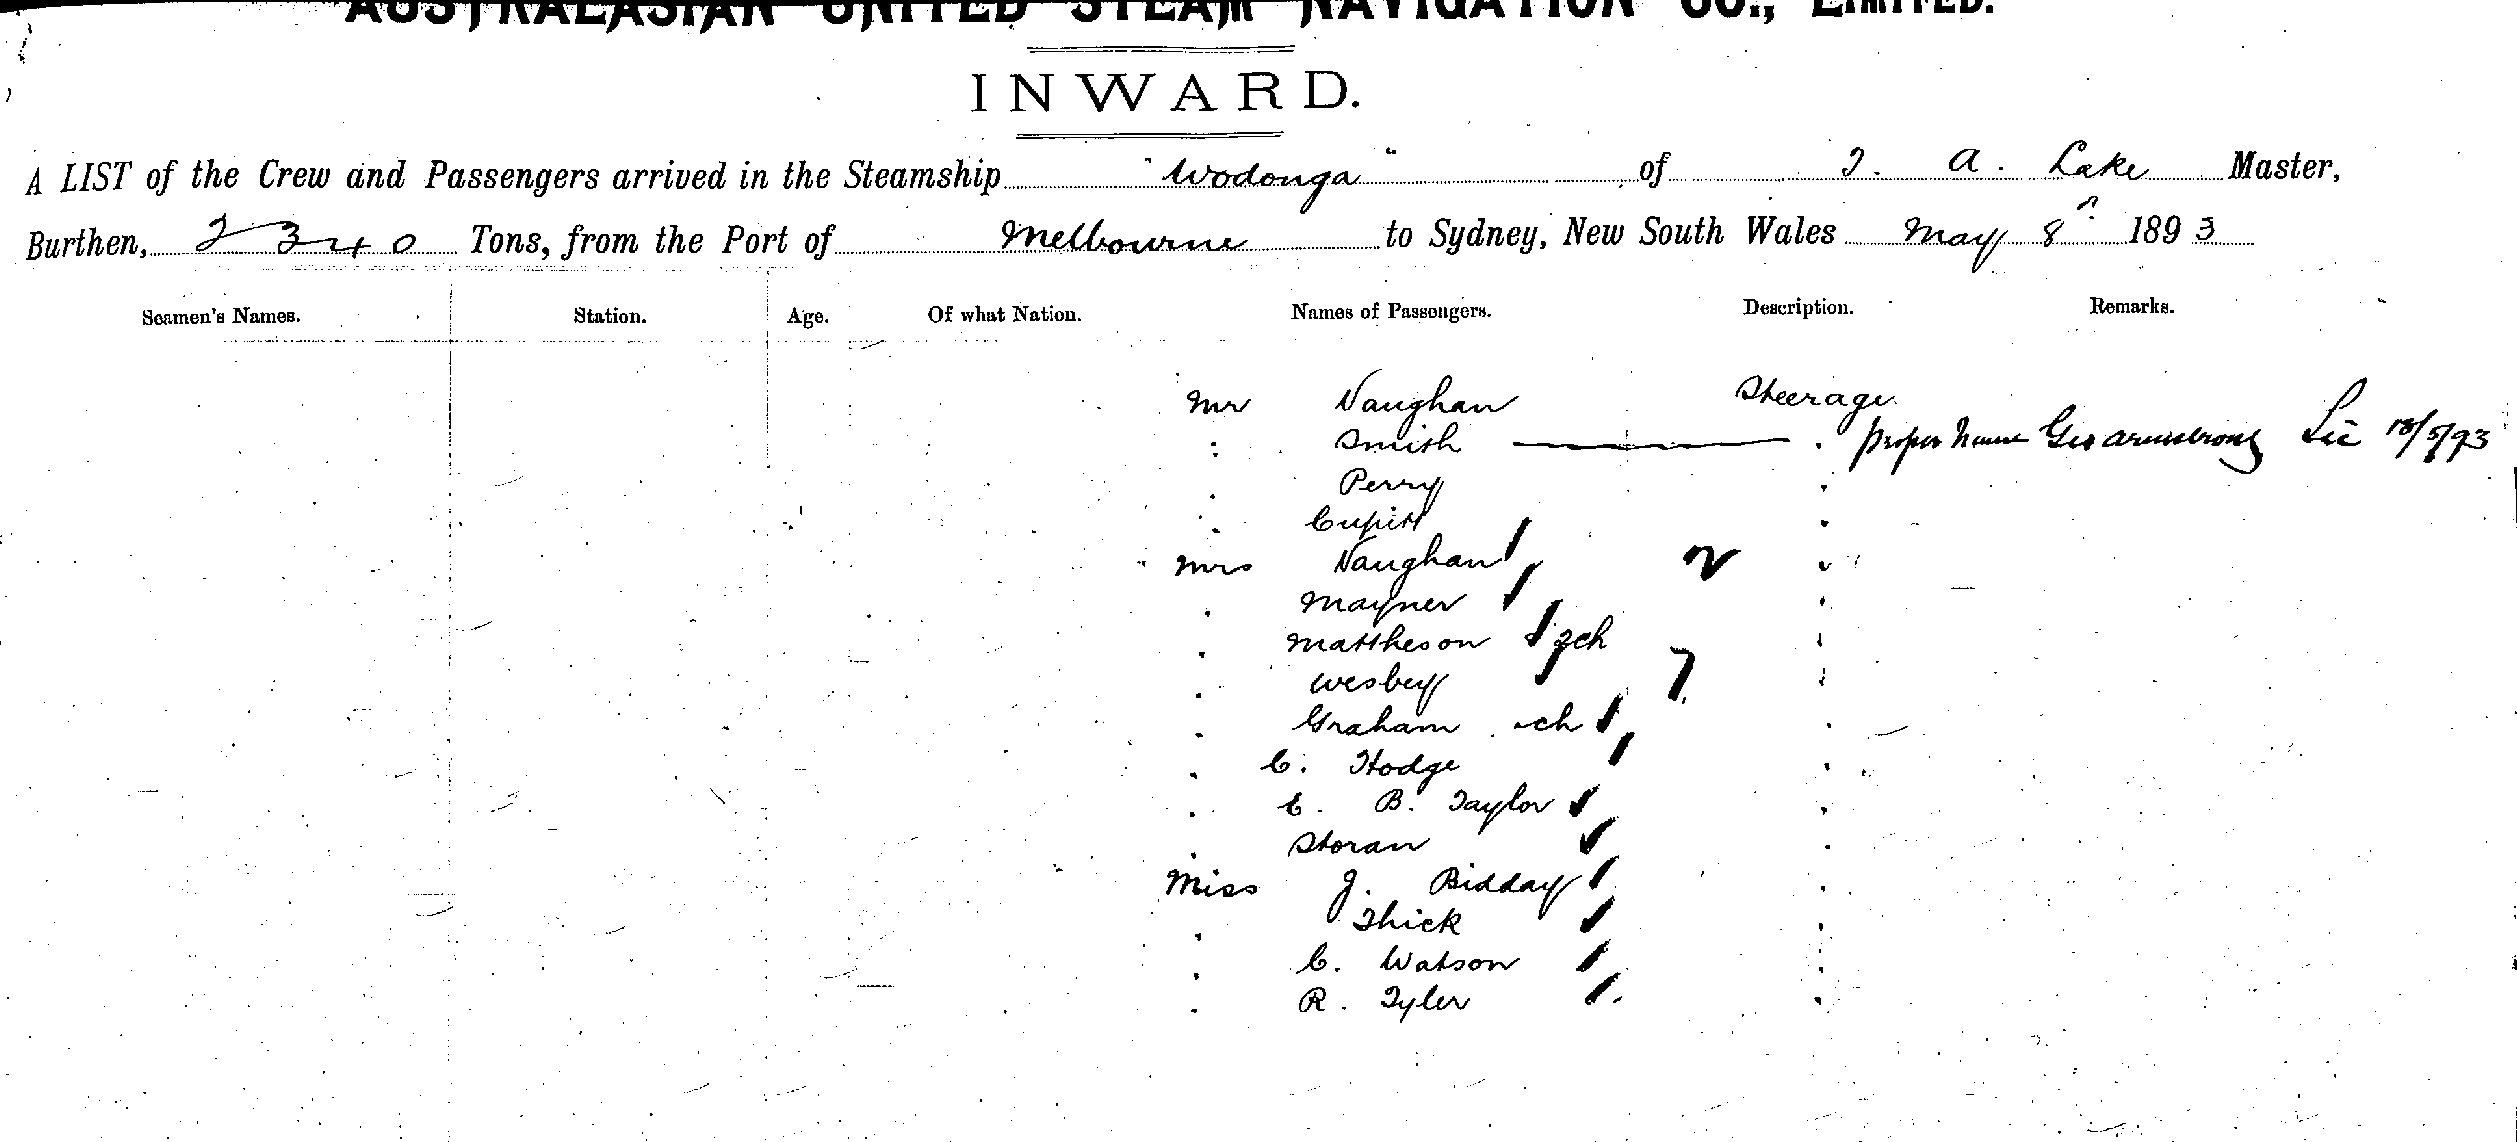 AUSTRALASIAN UNITED STEAM NAVIGATION CO., LIMITED.
INWARD.
A LIST of the Crew and Passengers arrived in the Steamship "Wodonga" of J. A. Lake Master,
Burthen, 2340 Tons, from the Port of Melbourne to Sydney, New South Wales May 8th 1893
Seamen's Names. Station. Age. Of what Nation. Names of Passengers. Description. Remarks.
Mr Vaughan Steerage
" Smith — " proper name Geo Armstrong
" Perry "
" Cupitt "
Mrs Vaughan "
" Mayner "
" Mattheson 2ch "
" Wesbey 7 "
" Graham ch "
" C. Hodge "
" E. B. Taylor "
" Storan "
Miss J. Bidday "
" Thick "
" C. Watson "
" R. Tyler "